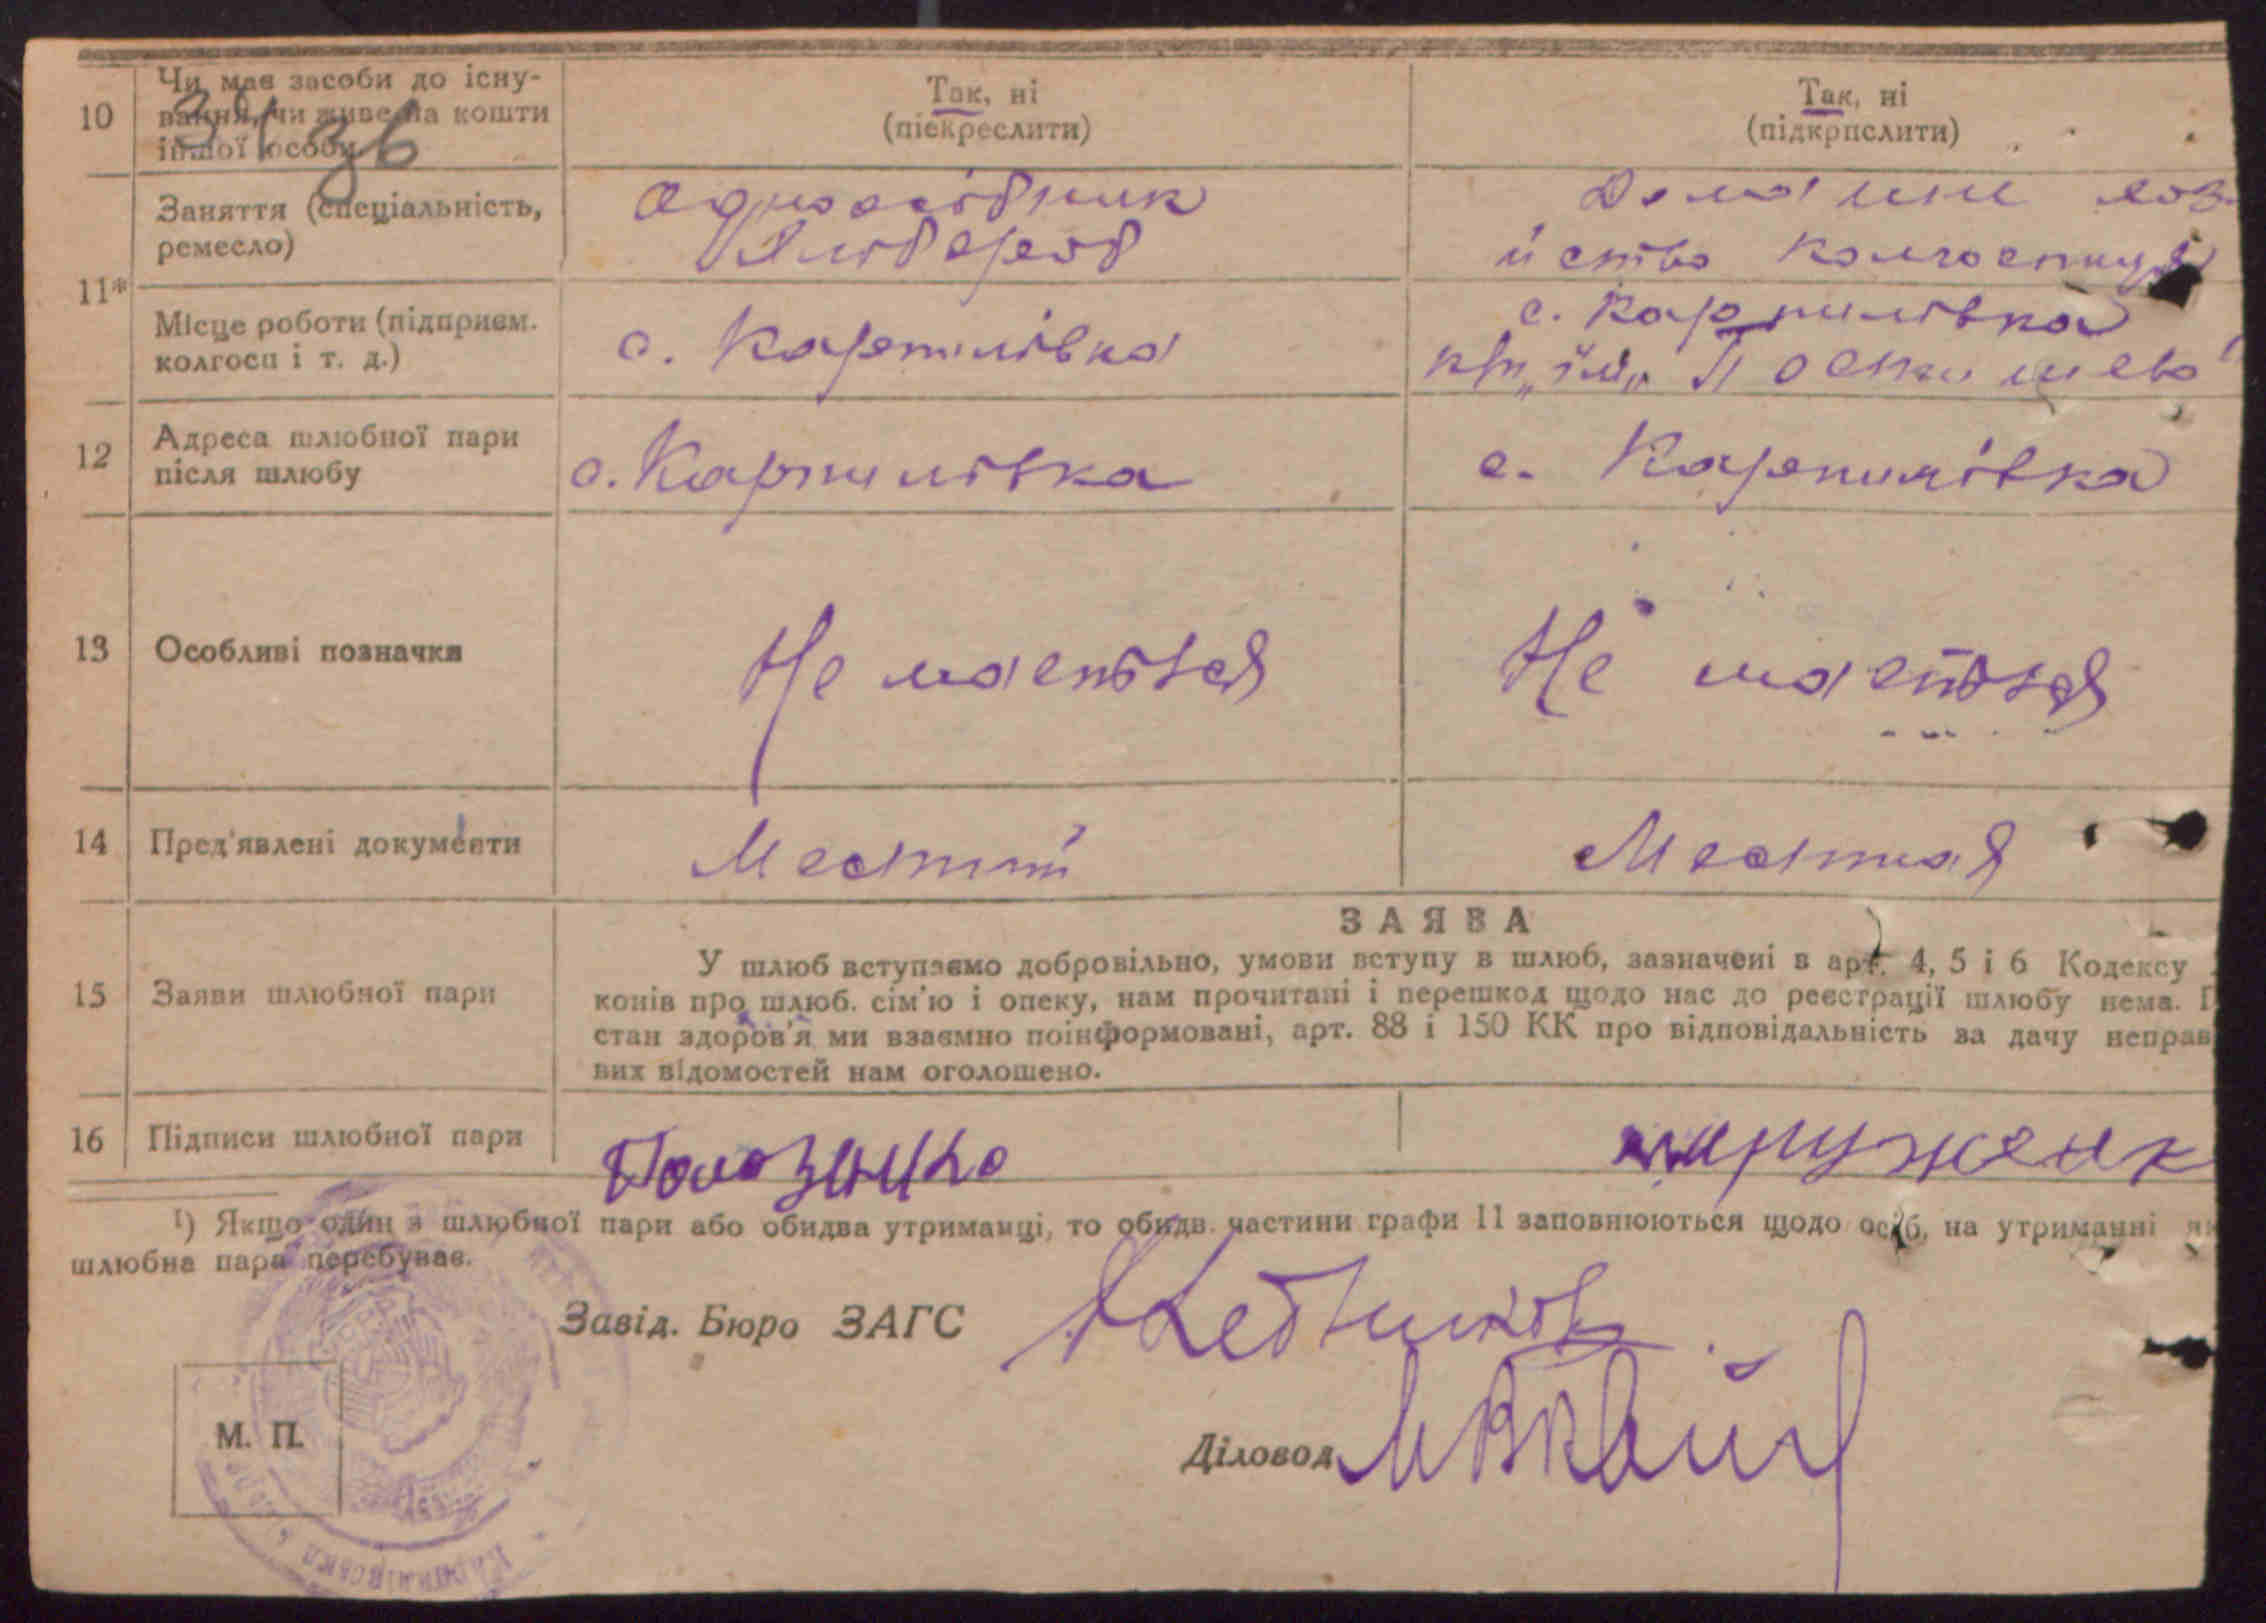 10
Чи має засоби до існу-
вання, чи живе на кошти
іншої особи
Так, ні
(піекреслити)
Так, ні
(підкрпслити)
11*
Заняття (спеціальність,
ремесло)
Одноосібник
Хлібороб
Домашнє хоз
йство колгоспниця
Місце роботи (підприєм.
колгосп і т. д.)
с. Карпилівка
с. Карпилівка
12
Адреса шлюбної пари
після шлюбу
с. Карпилівка
с. Карпилівка
13
Особливі позначки
Не маеться
Не маеться
14
Пред'явлені документи
Местний
Местная
ЗАЯВА
15
Заяви шлюбної пари
У шлюб вступаємо добровільно, умови вступу в шлюб, зазначені в арт. 4, 5 і 6 Кодексу
конів про шлюб. сім'ю і опеку, нам прочитані і перешкод щодо нас до реєстрації шлюбу нема. П
стан здоров'я ми взаємно поінформовані, арт. 88 і 150 КК про відповідальність за дачу неправ
вих відомостей нам оголошено.
16
Підписи шлюбної пари
¹) Якщо один з шлюбної пари або обидва утриманці, то обидв. частини графи 11 заповнюються щодо осіб, на утриманні як
шлюбна пара перебуває.
Завід. Бюро ЗАГС
Діловод
М. П.